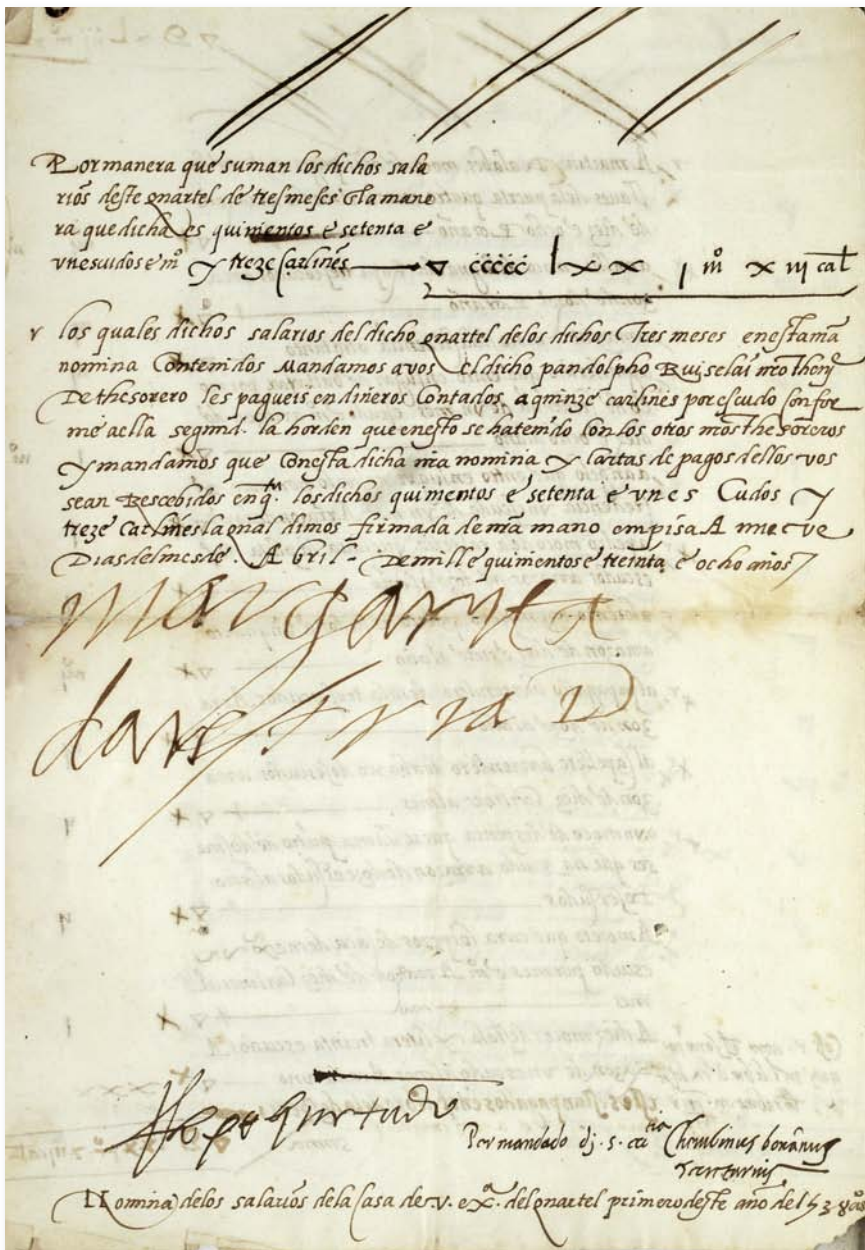 Por manera que suman los dichos sala
rios deste quartel de tres meses e la mane
ra que dicha es quinientos e setenta e
un escudos e mº y treze carlines ccccc lxx j mº xiij cal
v los quales dichos salarios del dicho quartel delos dichos tres meses en esta nra
nomina contenidos mandamos a vos el dicho pandolpho nro theni
De thesorero les pagueis en dineros contados a quinze carlines por escudo confor
me a ella segund la horden que en esto se ha tenido con los otros nros thesoreros
y mandamos que con esta dicha nra nomina y cartas de pagos dellos vos
sean Rescebidos en qta los dichos quinientos e setenta e un es cudos y
treze carlines la qual dimos firmada de nra mano en pisa A nueve
Dias del mes de Abril De mill e quinientos e treinta e ocho años
margarita
daustria D
Lope hurtado
Per mandado di s. ecc.tia Cherubinus
Secretarius
Nomina delos salarios dela casa de v. exª del quartel primero deste año del 1538 años